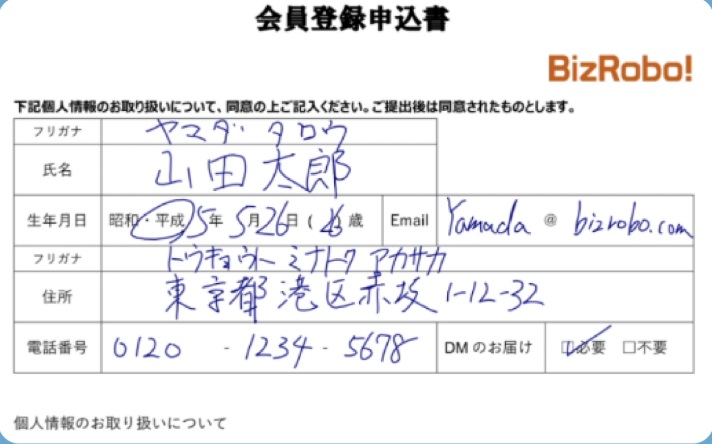 会員登録申込書
BizRobo!
下記個人情報のお取り扱いについて、同意の上ご記入ください。ご提出後は同意されたものとします。
フリガナ ヤマダ タロウ
氏名 山田太郎
生年月日 昭和・平成 5年 5月26日 ( 歳 Email Yamada @ bizrobo.com
フリガナ トウキョウト ミナトク アカサカ
住所 東京都港区赤坂 1-12-32
電話番号 0120 - 1234 - 5678 DMのお届け ☑必要 □不要
個人情報のお取り扱いについて